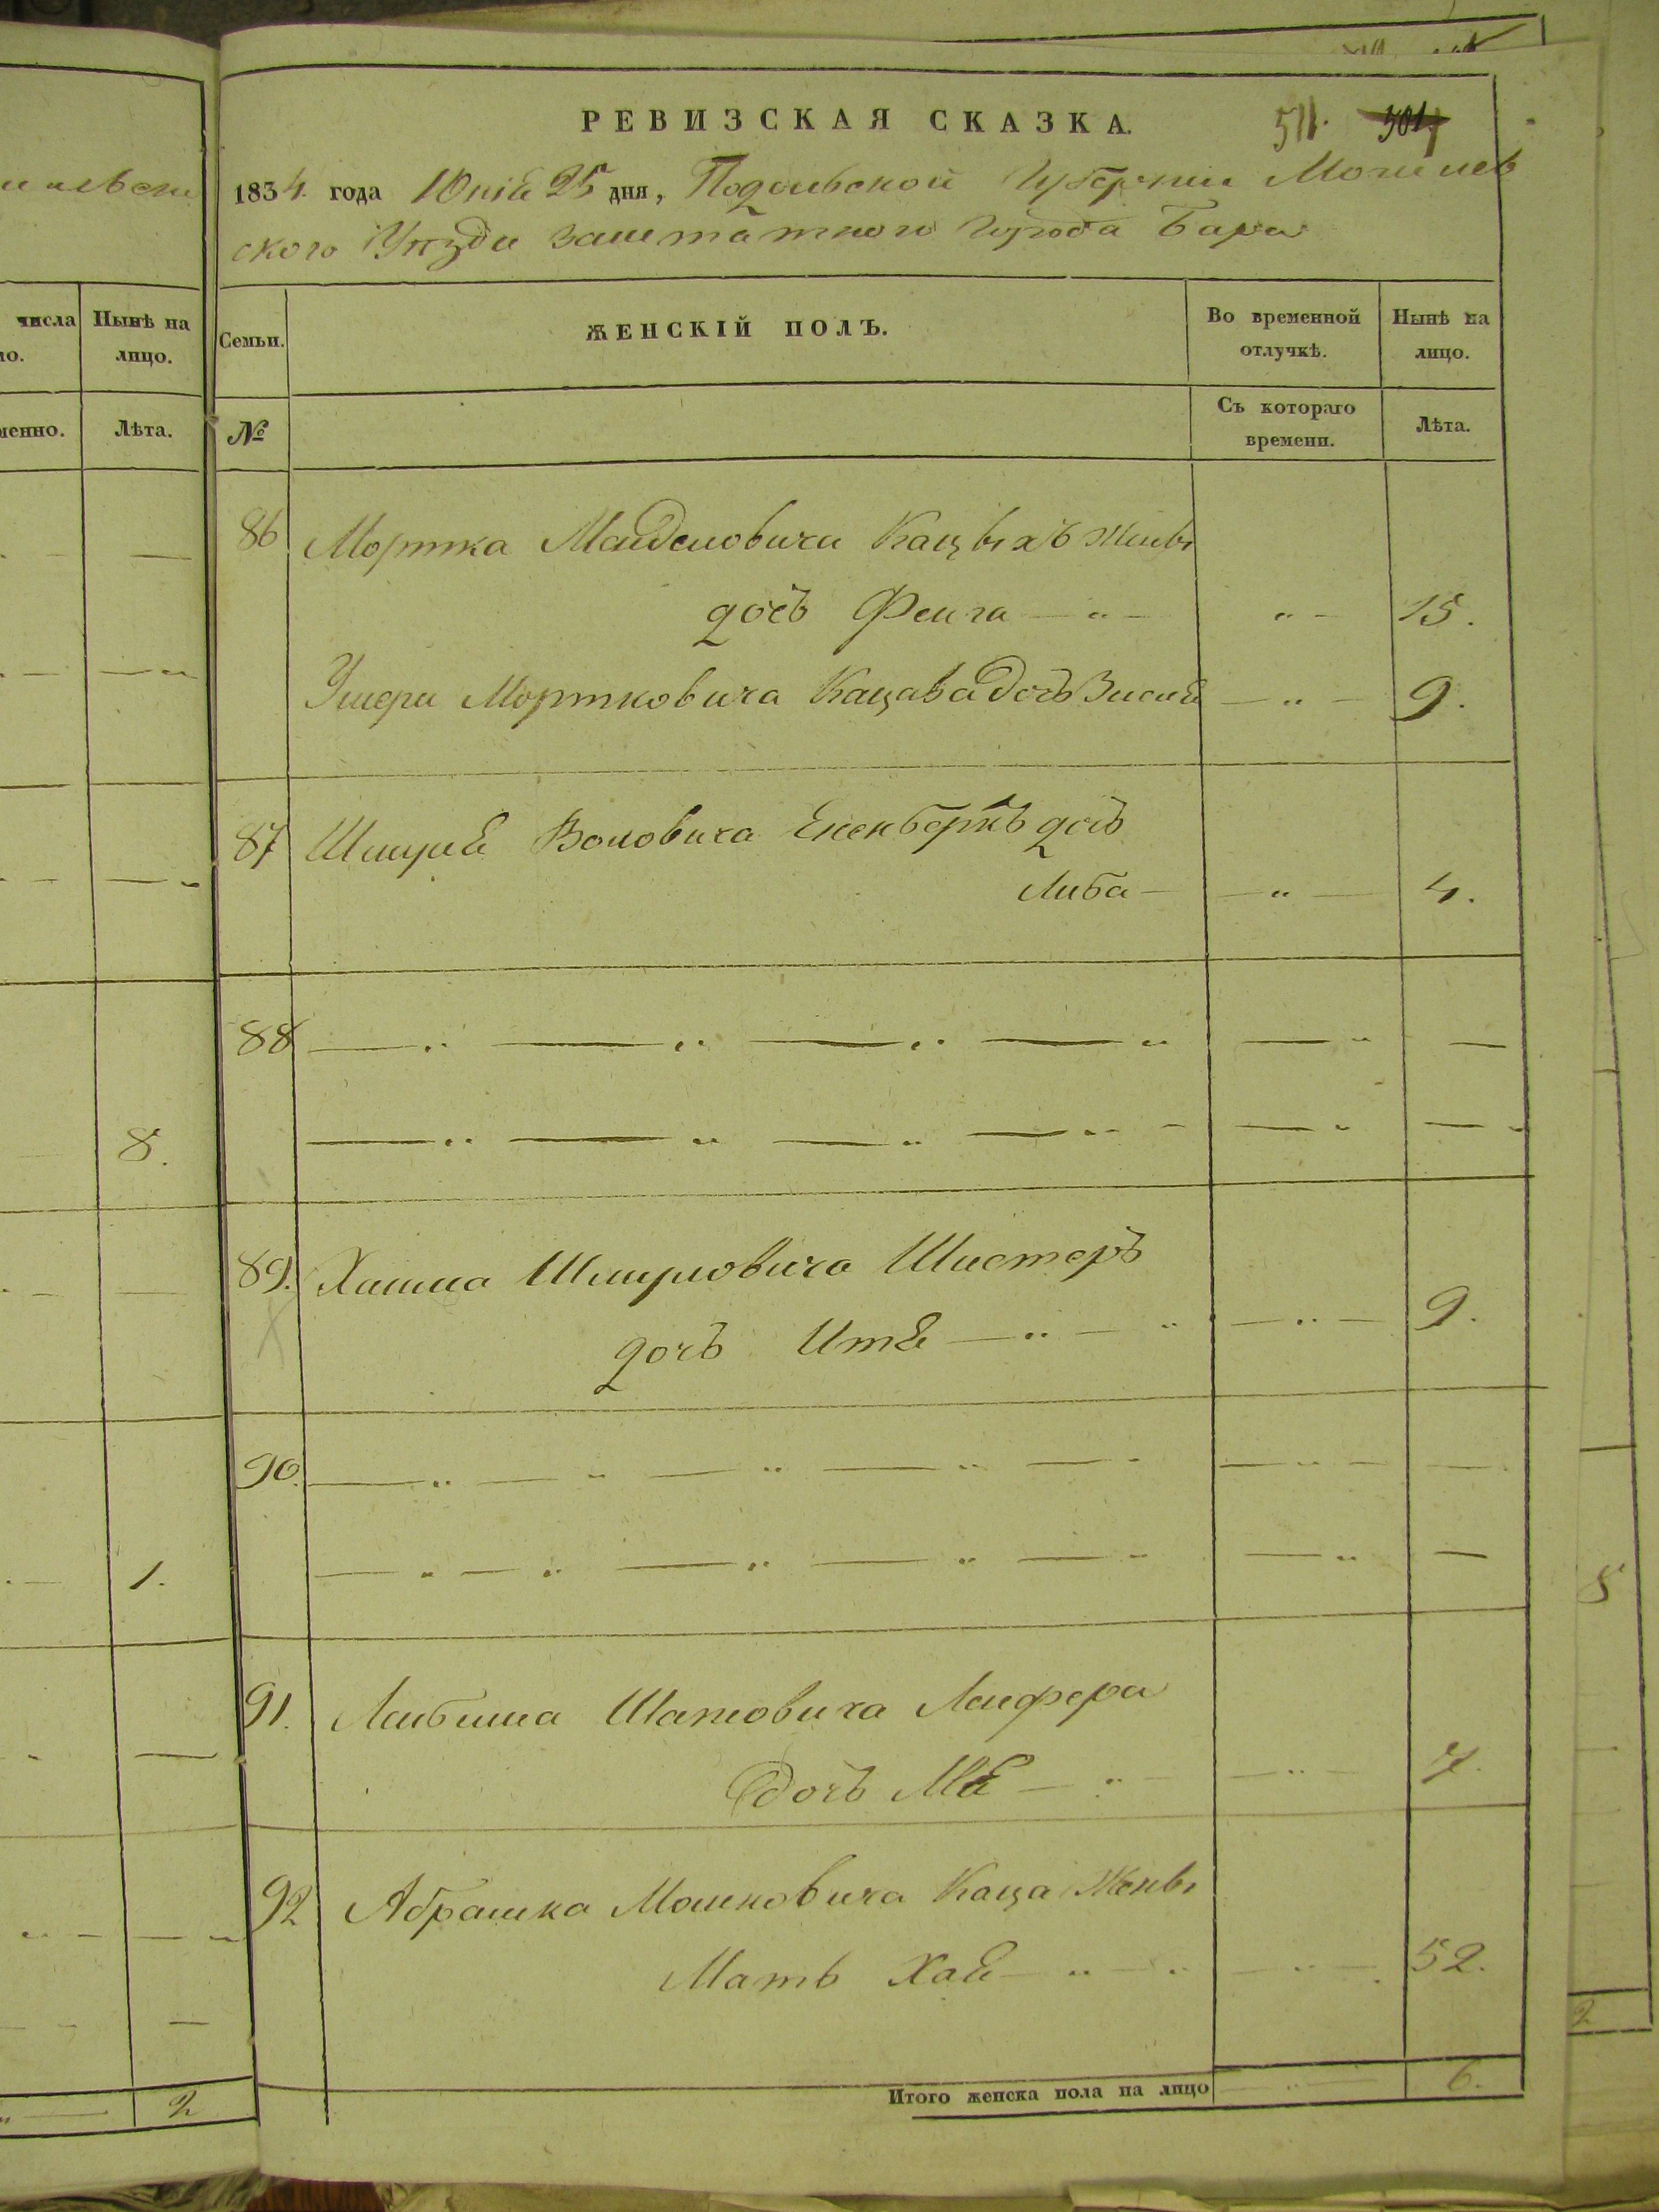 РЕВИЗСКАЯ СКАЗКА.
511. 501
1834. года Юнія 25 дня, Подольской Губерніи Могилев
ского Уѣзда заштатного города Бара
числа
Нынѣ на
лицо.
Лѣта.
Семьи.
ЖЕНСКІЙ ПОЛЪ.
Во временной
отлучкѣ.
Нынѣ на
лицо.
№
Съ котораго
времени.
Лѣта.
86 Мортка Манделовича Кацвыхъ жены
дочь Феига 15.
Умери Мортковича Кацава дочь 9.
87 Шмуля Воловича дочь
Либа 4.
88
89. Хаима Шмулевича Шистеръ
дочь Итя 9.
90.
91. Лейбиша Шаповича Лейфера
дочь 7.
92 Абрашка Мошковича Каца Жены
Мать Хая 52.
Итого женска пола на лицо 6.
8.
1.
2